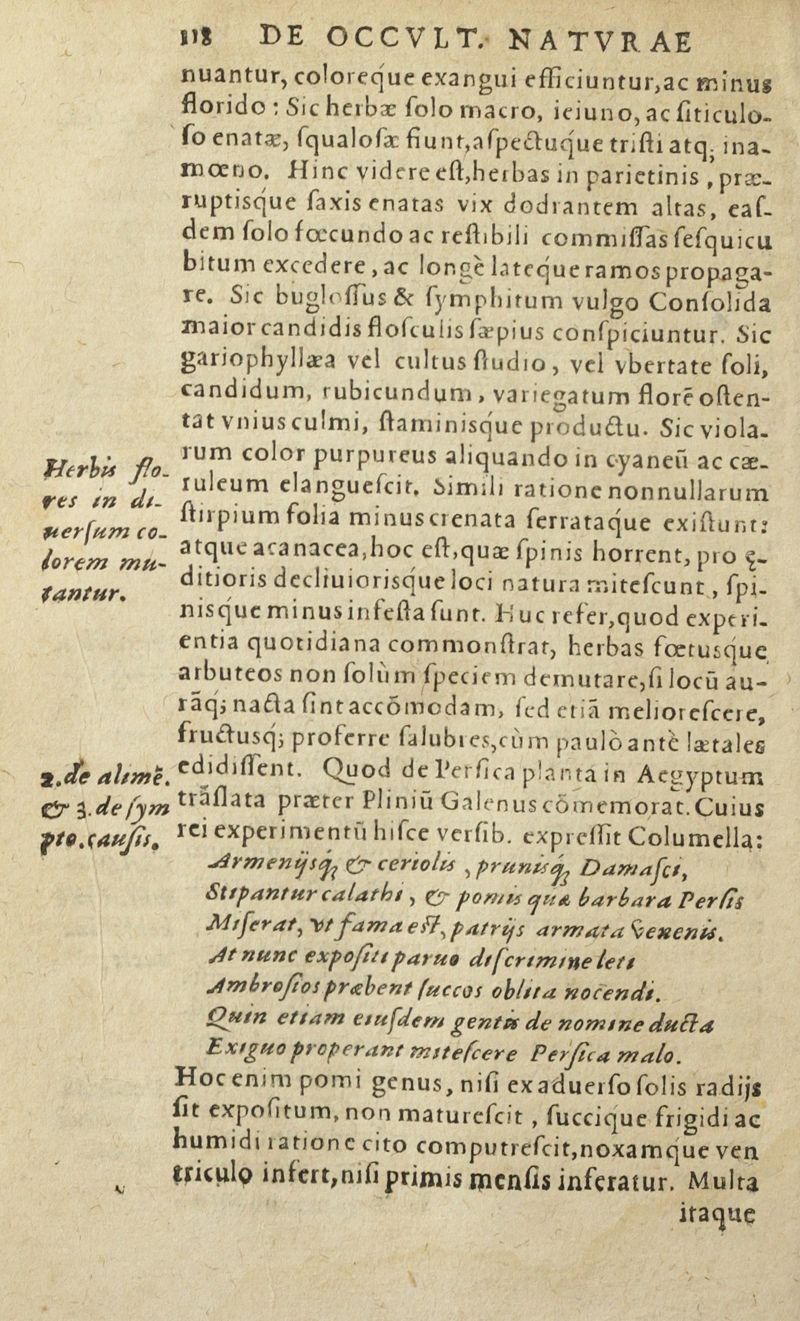 118 DE OCCVLT. NATVRAE
nuantur, coloreq́ue exangui efficiuntur, ac minus
florido: Sic herbæ solo macro, ieiuno, ac siticulo-
so enatæ, squalosæ fiunt, aspectuq́ue tristi atq; ina-
mœno. Hinc videre est, herbas in parietinis, præ-
ruptisq́ue saxis enatas vix dodrantem altas, eas-
dem solo fœcundo ac restibili commissas sesquicu
bitum excedere, ac longè lateq́ue ramos propaga-
re. Sic buglossus & symphitum vulgo Consolida
maior candidis flosculis sæpius conspiciuntur. Sic
gariophyllæa vel cultus studio, vel vbertate soli,
candidum, rubicundum, variegatum florẽ osten-
tat vnius culmi, staminisq́ue productu. Sic viola-
rum color purpureus aliquando in cyaneũ ac cæ-
ruleum elanguescit. Simili ratione nonnullarum
stirpium folia minus crenata serrataq́ue existunt:
atque acanacea, hoc est, quæ spinis horrent, pro ę-
ditioris decliuiorisque loci natura mitescunt, spi-
nisq́ue minus infesta sunt. Huc refer, quod experi-
entia quotidiana commonstrat, herbas fœtusq́ue
arbuteos non solùm speciem demutare, si locũ au-
rãq; nacta sint accõmodam, sed etiã meliorescere,
fructusq; proferre salubres, cùm paulò antè lætales
edidissent. Quod de Persica planta in Aegyptum
trãslata præter Pliniũ Galenus cõmemorat. Cuius
rei experimentũ hisce versib. expressit Columella:
Armenijsq; & cereolis, prunisq; Damasci,
Stipantur calathi, & pomis quæ barbara Persis
Miserat, vt fama est, patrijs armata venenis.
At nunc expositi paruo discrimine leti
Ambrosios præbent succos oblita nocendi.
Quin etiam eiusdem gentis de nomine ducta
Exiguo properant mitescere Persica malo.
Hoc enim pomi genus, nisi ex aduerso solis radijs
sit expositum, non maturescit, succique frigidi ac
humidi ratione cito computrescit, noxamq́ue ven
triculo infert, nisi primis mensis inferatur. Multa
itaque
Herbis flo-
res in di-
uersum co-
lorem mu-
tantur.
2. de alimẽ.
& 3. de sym
pto. causis.